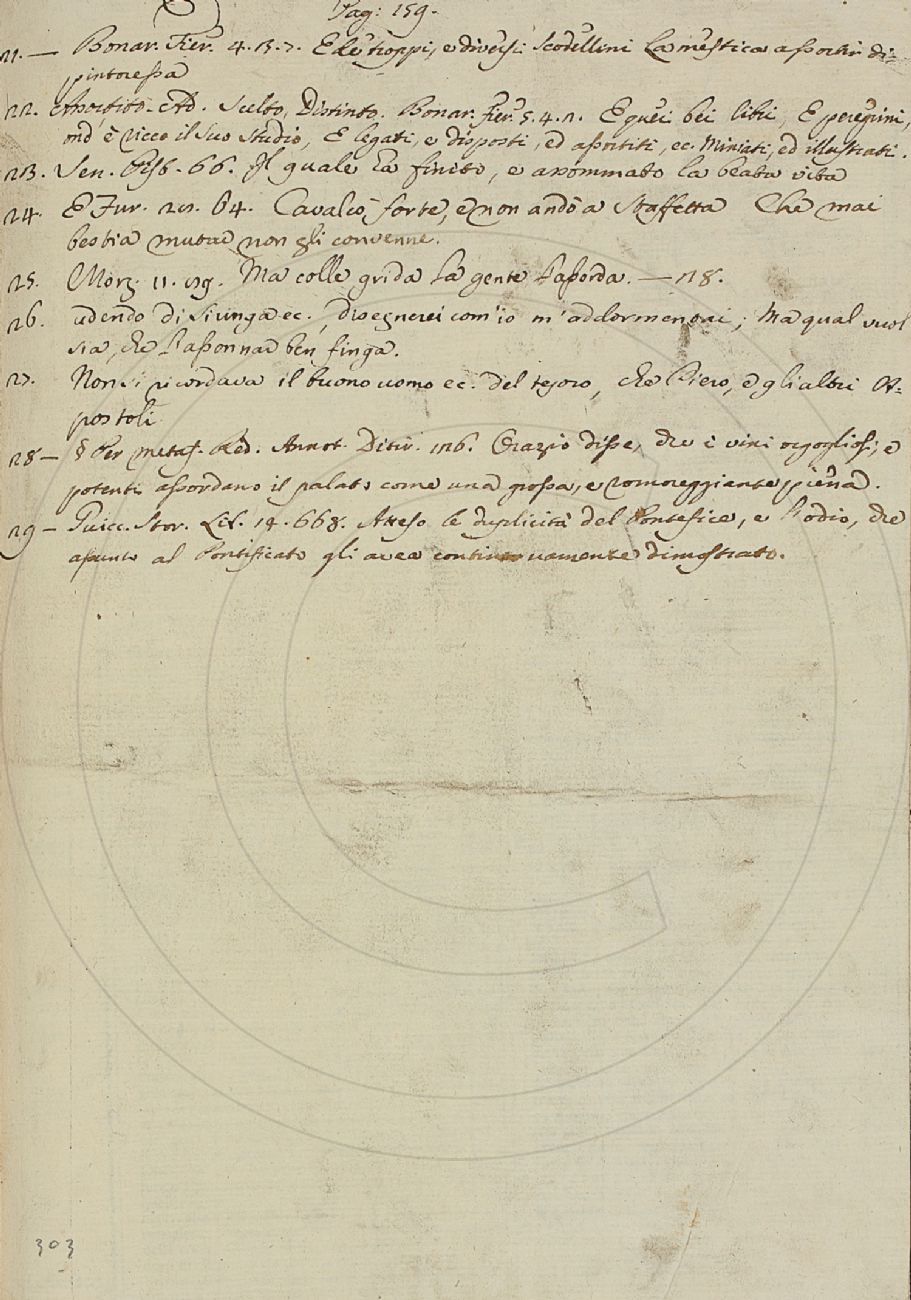 Pag: 159.
21. — Bonar. Fier. 4. 13. 7. E de' troppi, e diversi Scodellini La mestica assortir di=
pintoressa
22. Assortito. Ad. Scelto, Distinto. Bonar. Fier. 5. 4. 1. E quei bei libri, E peregrini,
ond' è ricco il suo studio, E legati, e disposti, ed assortiti, ec. Miniati, ed illustrati.
23. Sen. Pist. 66. Il quale ha finito, e assommato la beata vita
24. E Fur. 64. Cavalcò forte, e non andò a Staffetta Che mai
bestia mutar non gli convenne.
25. Morg. 11. 19. Ma colle grida la gente l'assorda. — 118.
26. udendo di Siringa ec., disegnerei com' io m' addormentai; Ma qual vuol
sia, che l'assonnar ben finga.
27. Non si ricordava il buono uomo ec. del tesoro, che Piero, e gli altri A=
postoli
28 — § Per metaf. Red. Annot. Ditir. 116. Orazio disse, che i vini orgogliosi, e
potenti assordano il palato come una grossa, e romoreggiante piena.
29 — Guicc. Stor. Lib. 14. 668. Atteso le duplicità del Pontefice, e l'odio, che
assunto al Pontificato gli avea continovamente dimostrato.
303